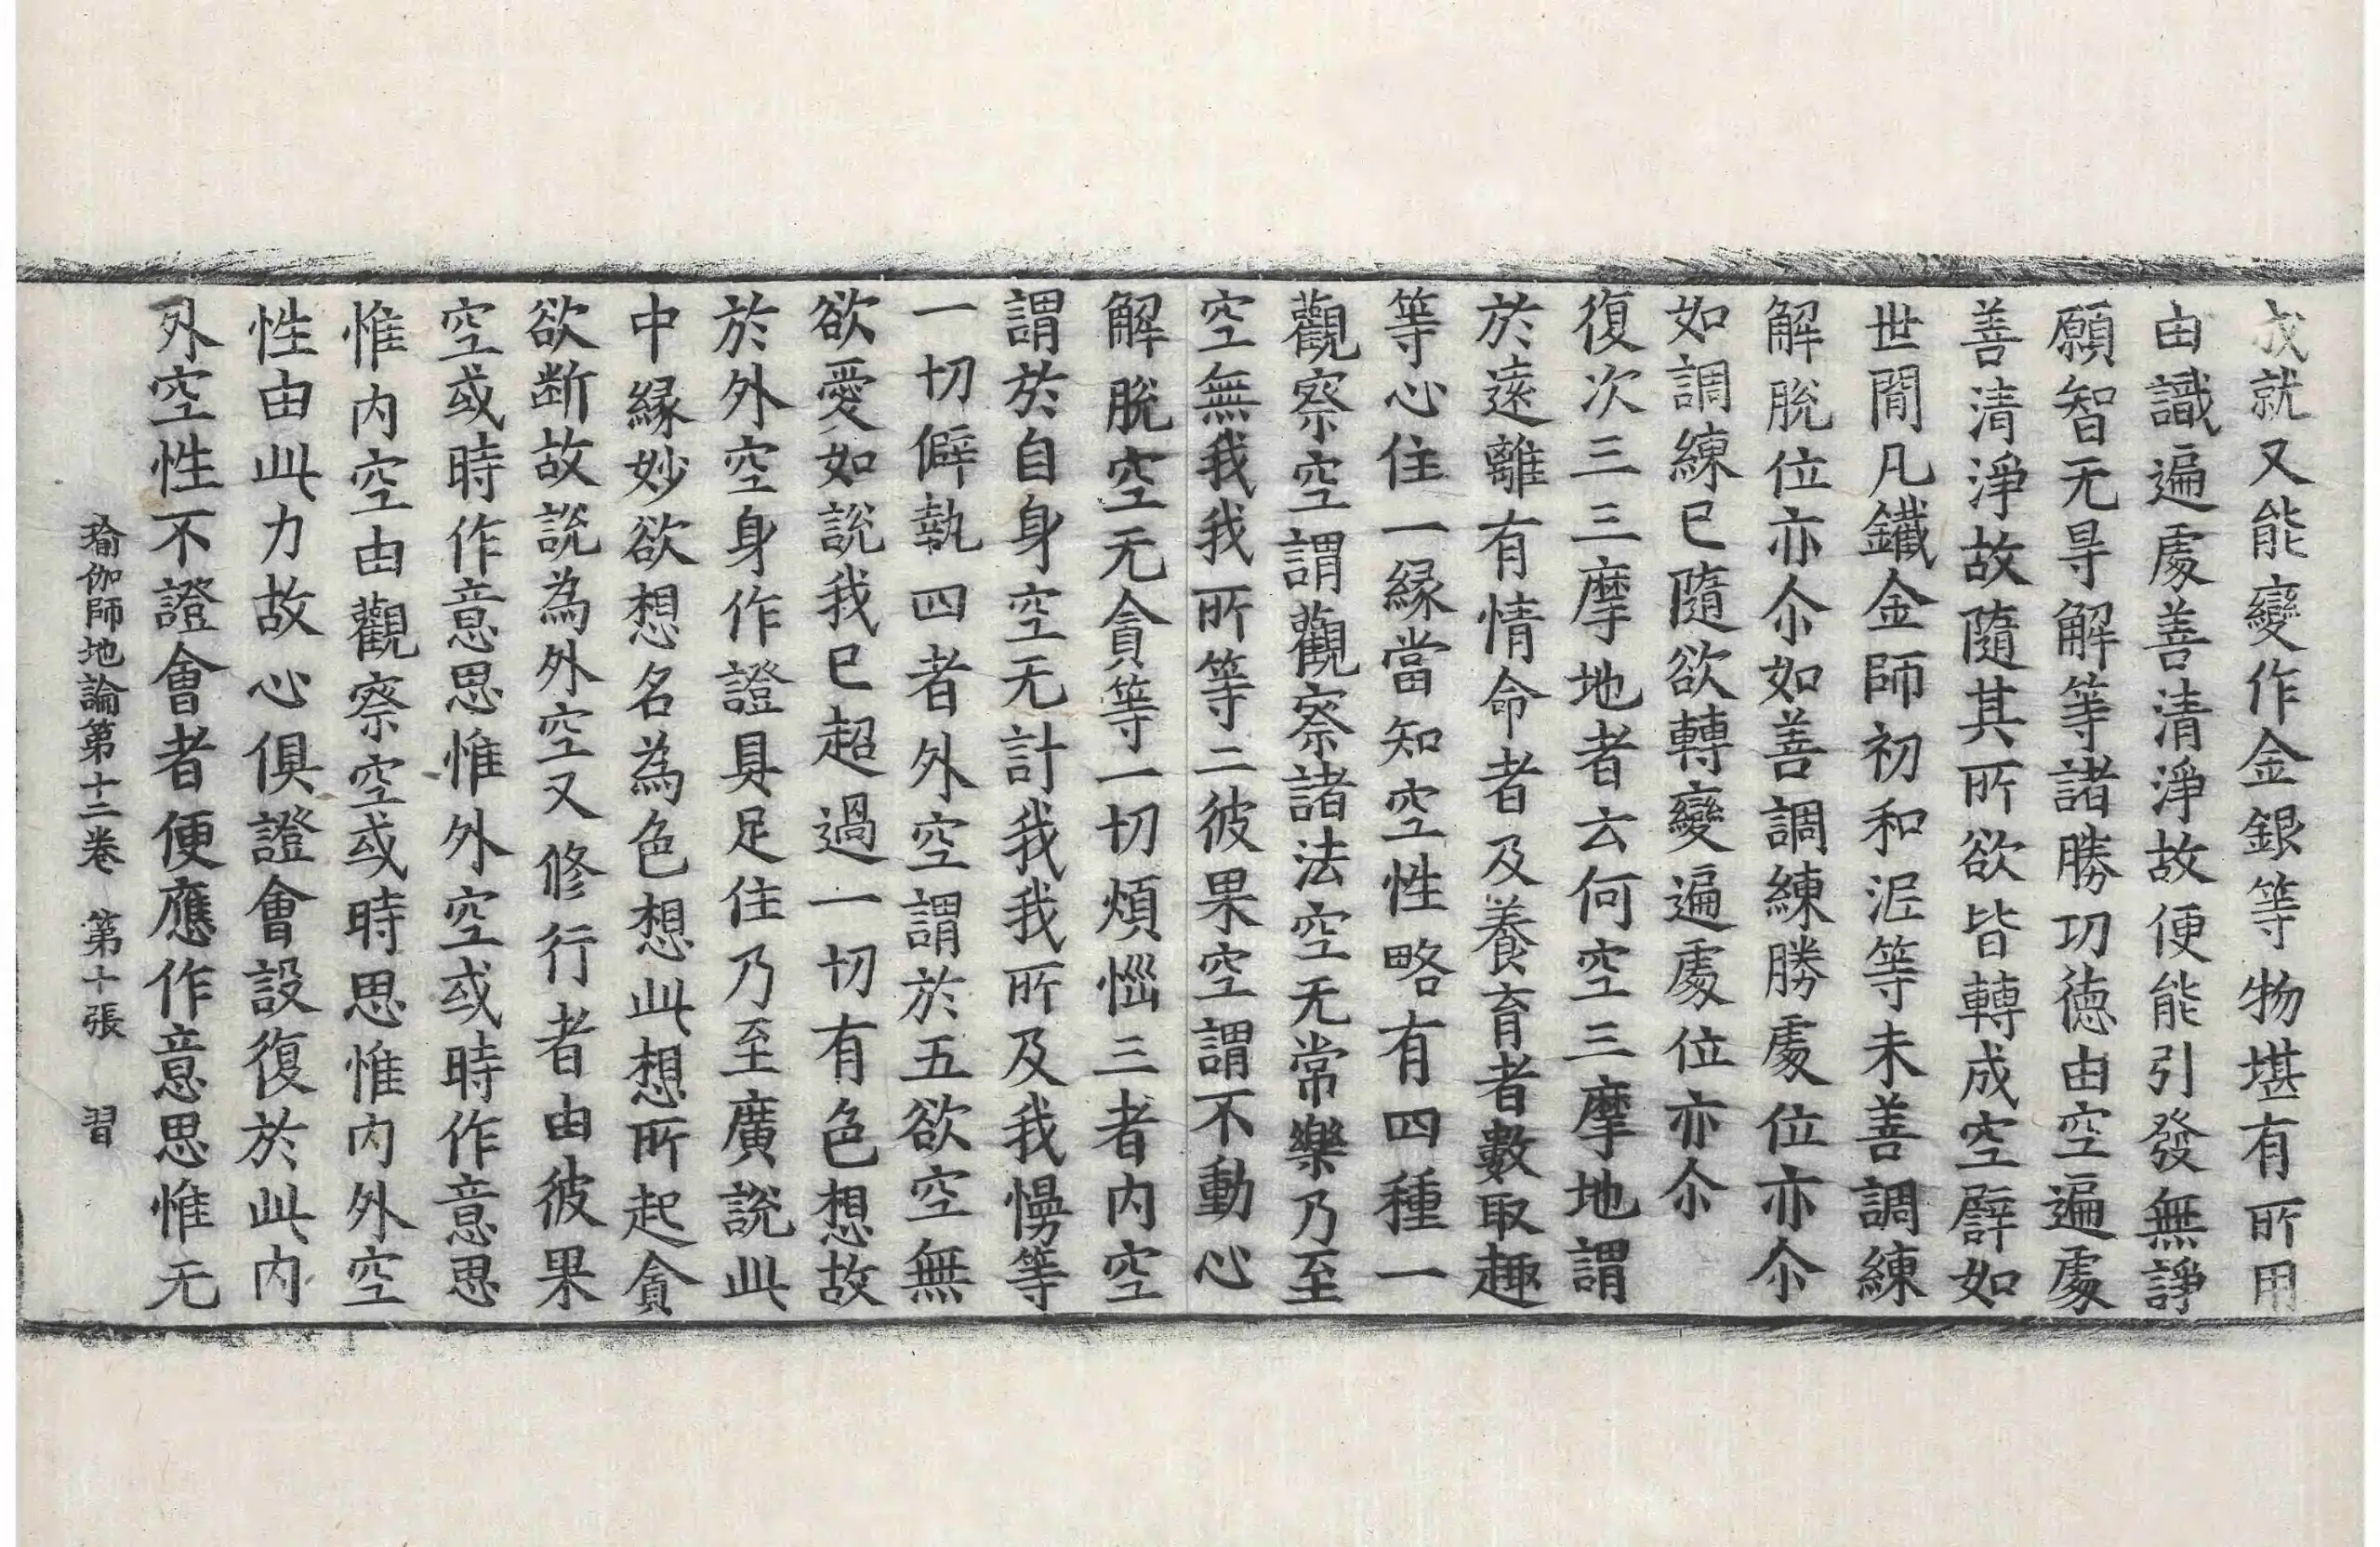 成就又能變作金銀等物堪有所用
由識遍處善清淨故便能引發無諍
願智无㝵解等諸勝功德由空遍處
善清淨故隨其所欲皆轉成空譬如
世間凡鐵金師初和泥等未善調練
解脫位亦尒如善調練勝處位亦尒
如調練已隨欲轉變遍處位亦尒
復次三三摩地者云何空三摩地謂
於遠離有情命者及養育者數取趣
等心住一緣當知空性略有四種一
觀察空謂觀察諸法空无常樂乃至
空無我我所等二彼果空謂不動心
解脫空无貪等一切煩惱三者內空
謂於自身空无計我我所及我慢等
一切僻執四者外空謂於五欲空無
欲愛如說我已超過一切有色想故
於外空身作證具足住乃至廣說此
中緣妙欲想名為色想此想所起貪
欲断故說為外空又修行者由彼果
空或時作意思惟外空或時作意思
惟內空由觀察空或時思惟內外空
性由此力故心俱證會設復於此內
外空性不證會者便應作意思惟无
瑜伽師地論第十二卷 第十張 習